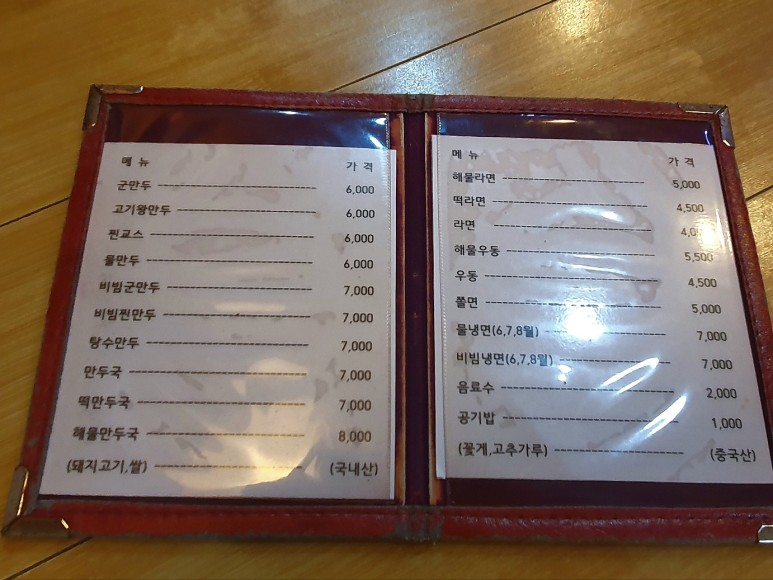 메 뉴 가 격
군만두 6,000
고기왕만두 6,000
찐교스 6,000
물만두 6,000
비빔군만두 7,000
비빔찐만두 7,000
탕수만두 7,000
만두국 7,000
떡만두국 7,000
해물만두국 8,000
(돼지고기,쌀) (국내산)
메 뉴 가 격
해물라면 5,000
떡라면 4,500
라면
해물우동 5,500
우동 4,500
쫄면 5,000
물냉면(6,7,8월) 7,000
비빔냉면(6,7,8월) 7,000
음료수 2,000
공기밥 1,000
(꽃게,고추가루) (중국산)